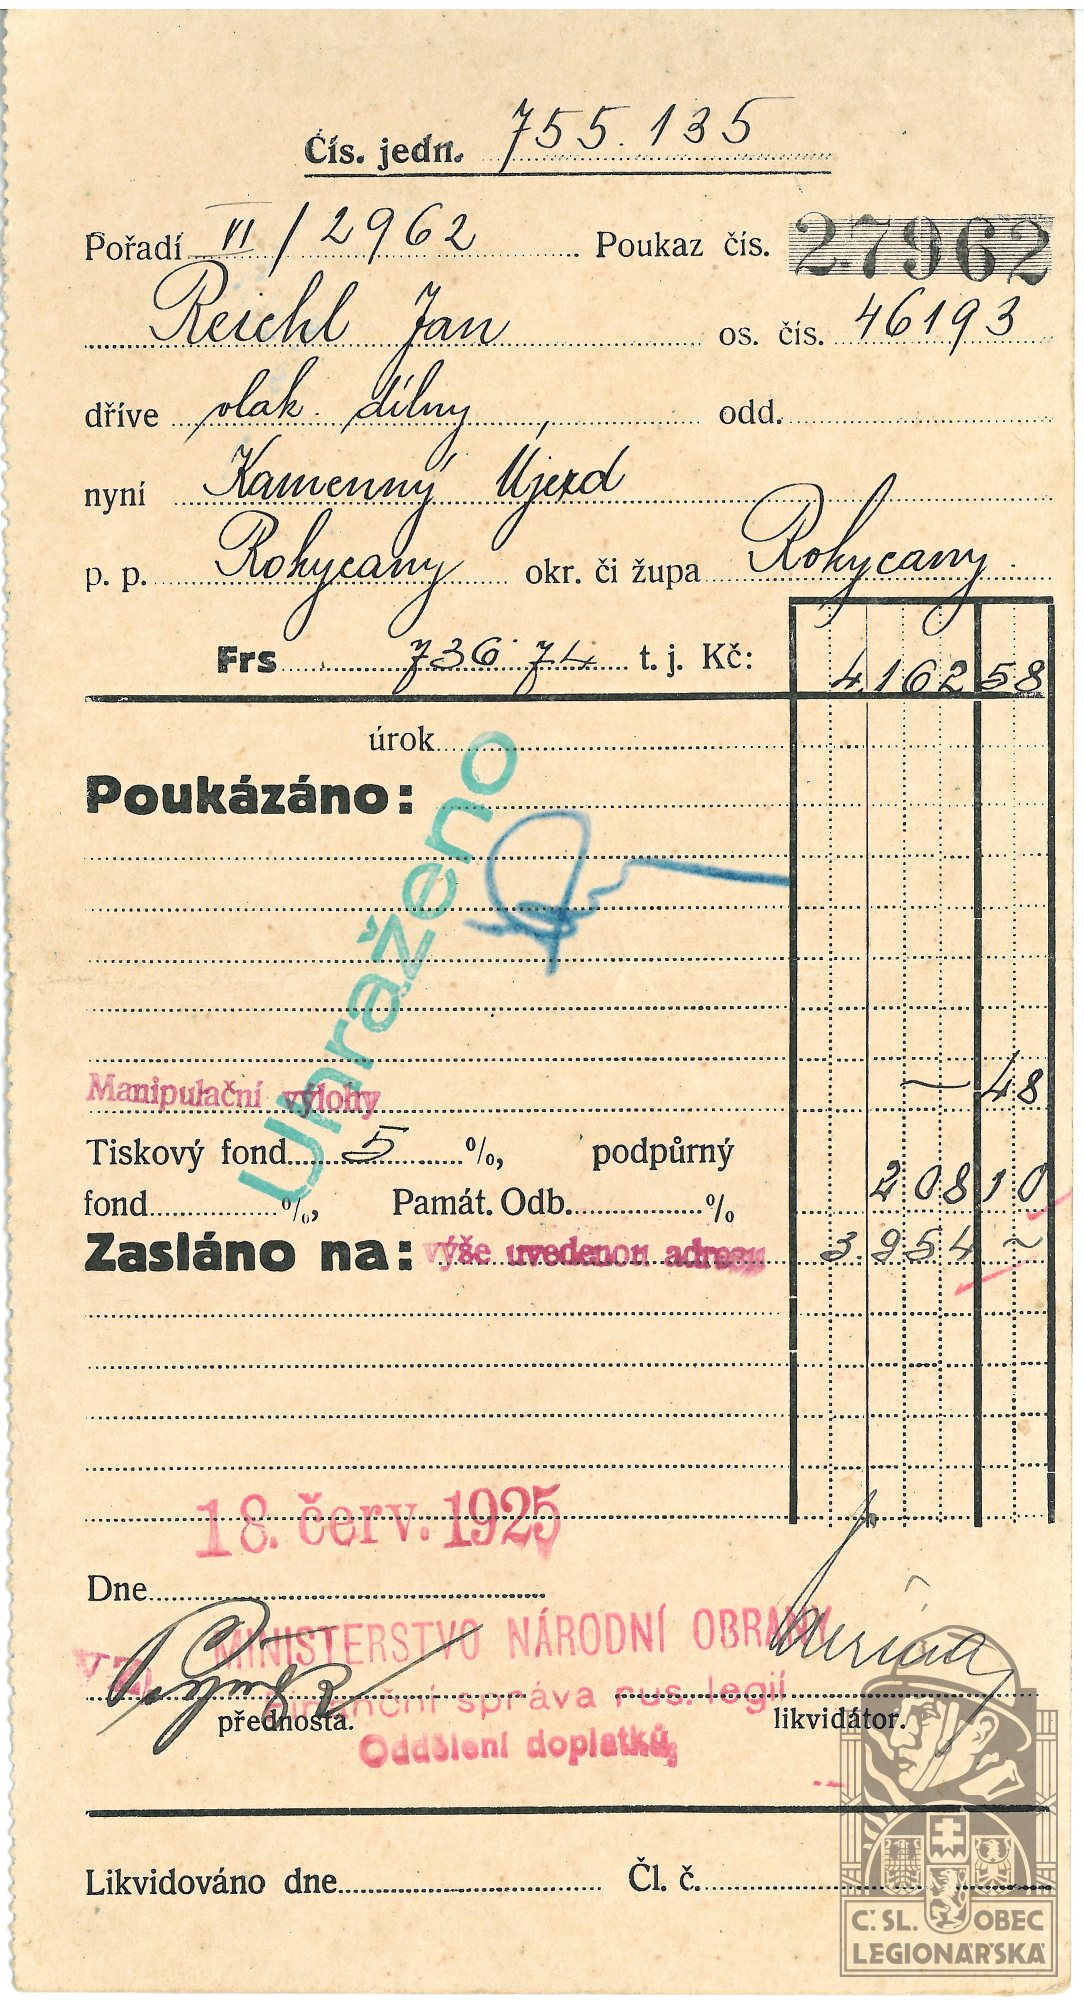 Čís. jedn. 755.135
Pořadí VI/2962 Poukaz čís. 27962
Reichl Jan os. čís. 46193
dříve vlak. dílny, odd.
nyní Kamenný Újezd
p. p. Rokycany okr. či župa Rokycany.
Frs 736 74 t. j. Kč: 4162 58
úrok
Poukázáno:
Uhraženo
Manipulační výlohy — 48
Tiskový fond 5 %, podpůrný
fond %, Památ. Odb. % 208 10
Zasláno na: výše uvedenou adresu 3.954 ~
18. červ. 1925
Dne
MINISTERSTVO NÁRODNÍ OBRANY
Finanční správa rus. legií
přednosta. likvidátor.
Oddělení doplatků
Likvidováno dne Čl. č.
Č. SL. OBEC
LEGIONÁŘSKÁ